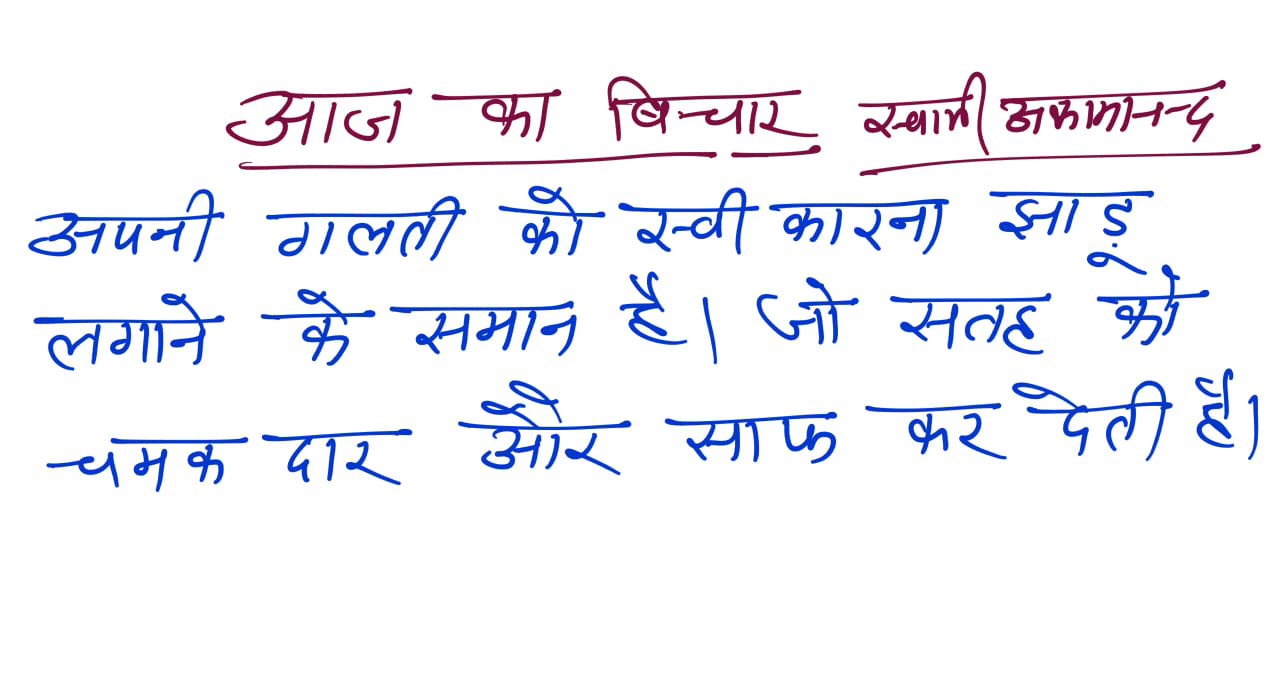 आज का बिचार स्वामी अकामानन्द
अपनी गलती को स्वीकारना झाड़ू
लगाने के समान है। जो सतह को
चमक दार और साफ कर देती है।